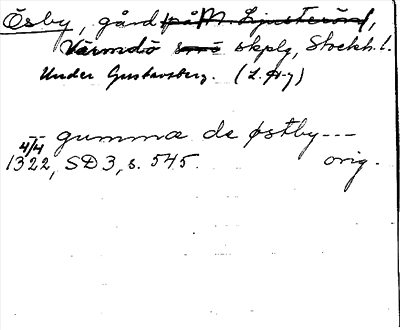 Ösby, gård på N. Ljusterön,
Värmdö skplg, Stockh. l.
Under Gustavsberg. (L. H-g)
gummæ de østby ---
4/4
1322, SD 3, s. 545. orig.